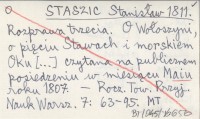 STASZIC Stanisław 1811.
Rozprawa trzecia. O Wołoszyni,
o pięciu Stawach i morskiem
Oku [...] czytana na publicznem
posiedzeniu w miesiącu Maiu
roku 1807. — Rocz. Tow. Przyj.
Nauk Warsz. 7: 63-95. MT